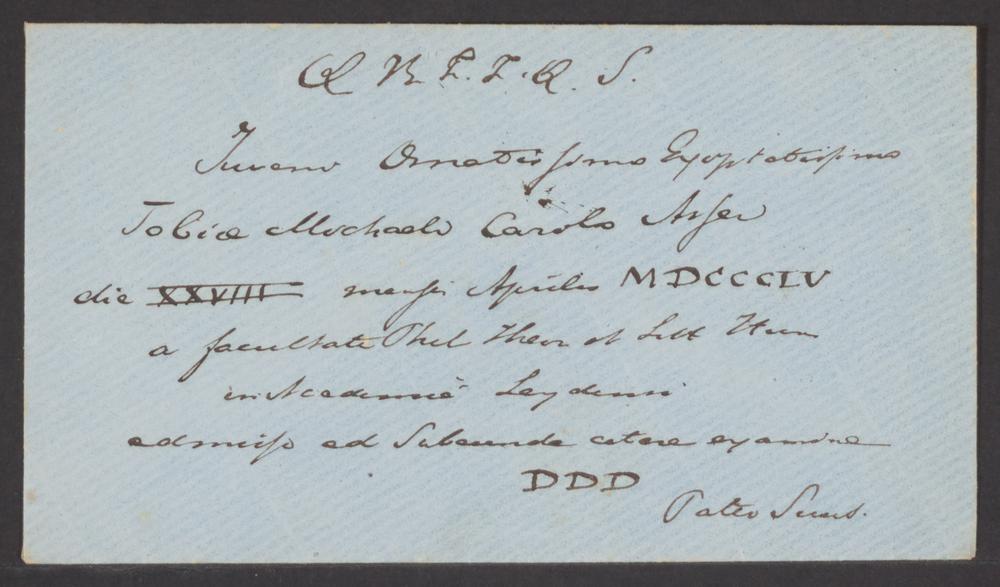 Q B F. F. Q. S.
Juveni Ornatissimo Exoptatissimo
Tobiae Michaeli Carolo Asser
die XXVIII mensis Aprilis MDCCCLV
a facultate Phil Theor et Litt Hum
in Academiâ Leydensi
admisso ad Subeunda cetera examina
DDD
Pater Suus.